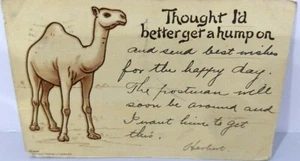 Thought I'd
better get a hump on
and send best wishes
for the happy day.
The postman will
soon be around and
I want him to get
this.
Herbert